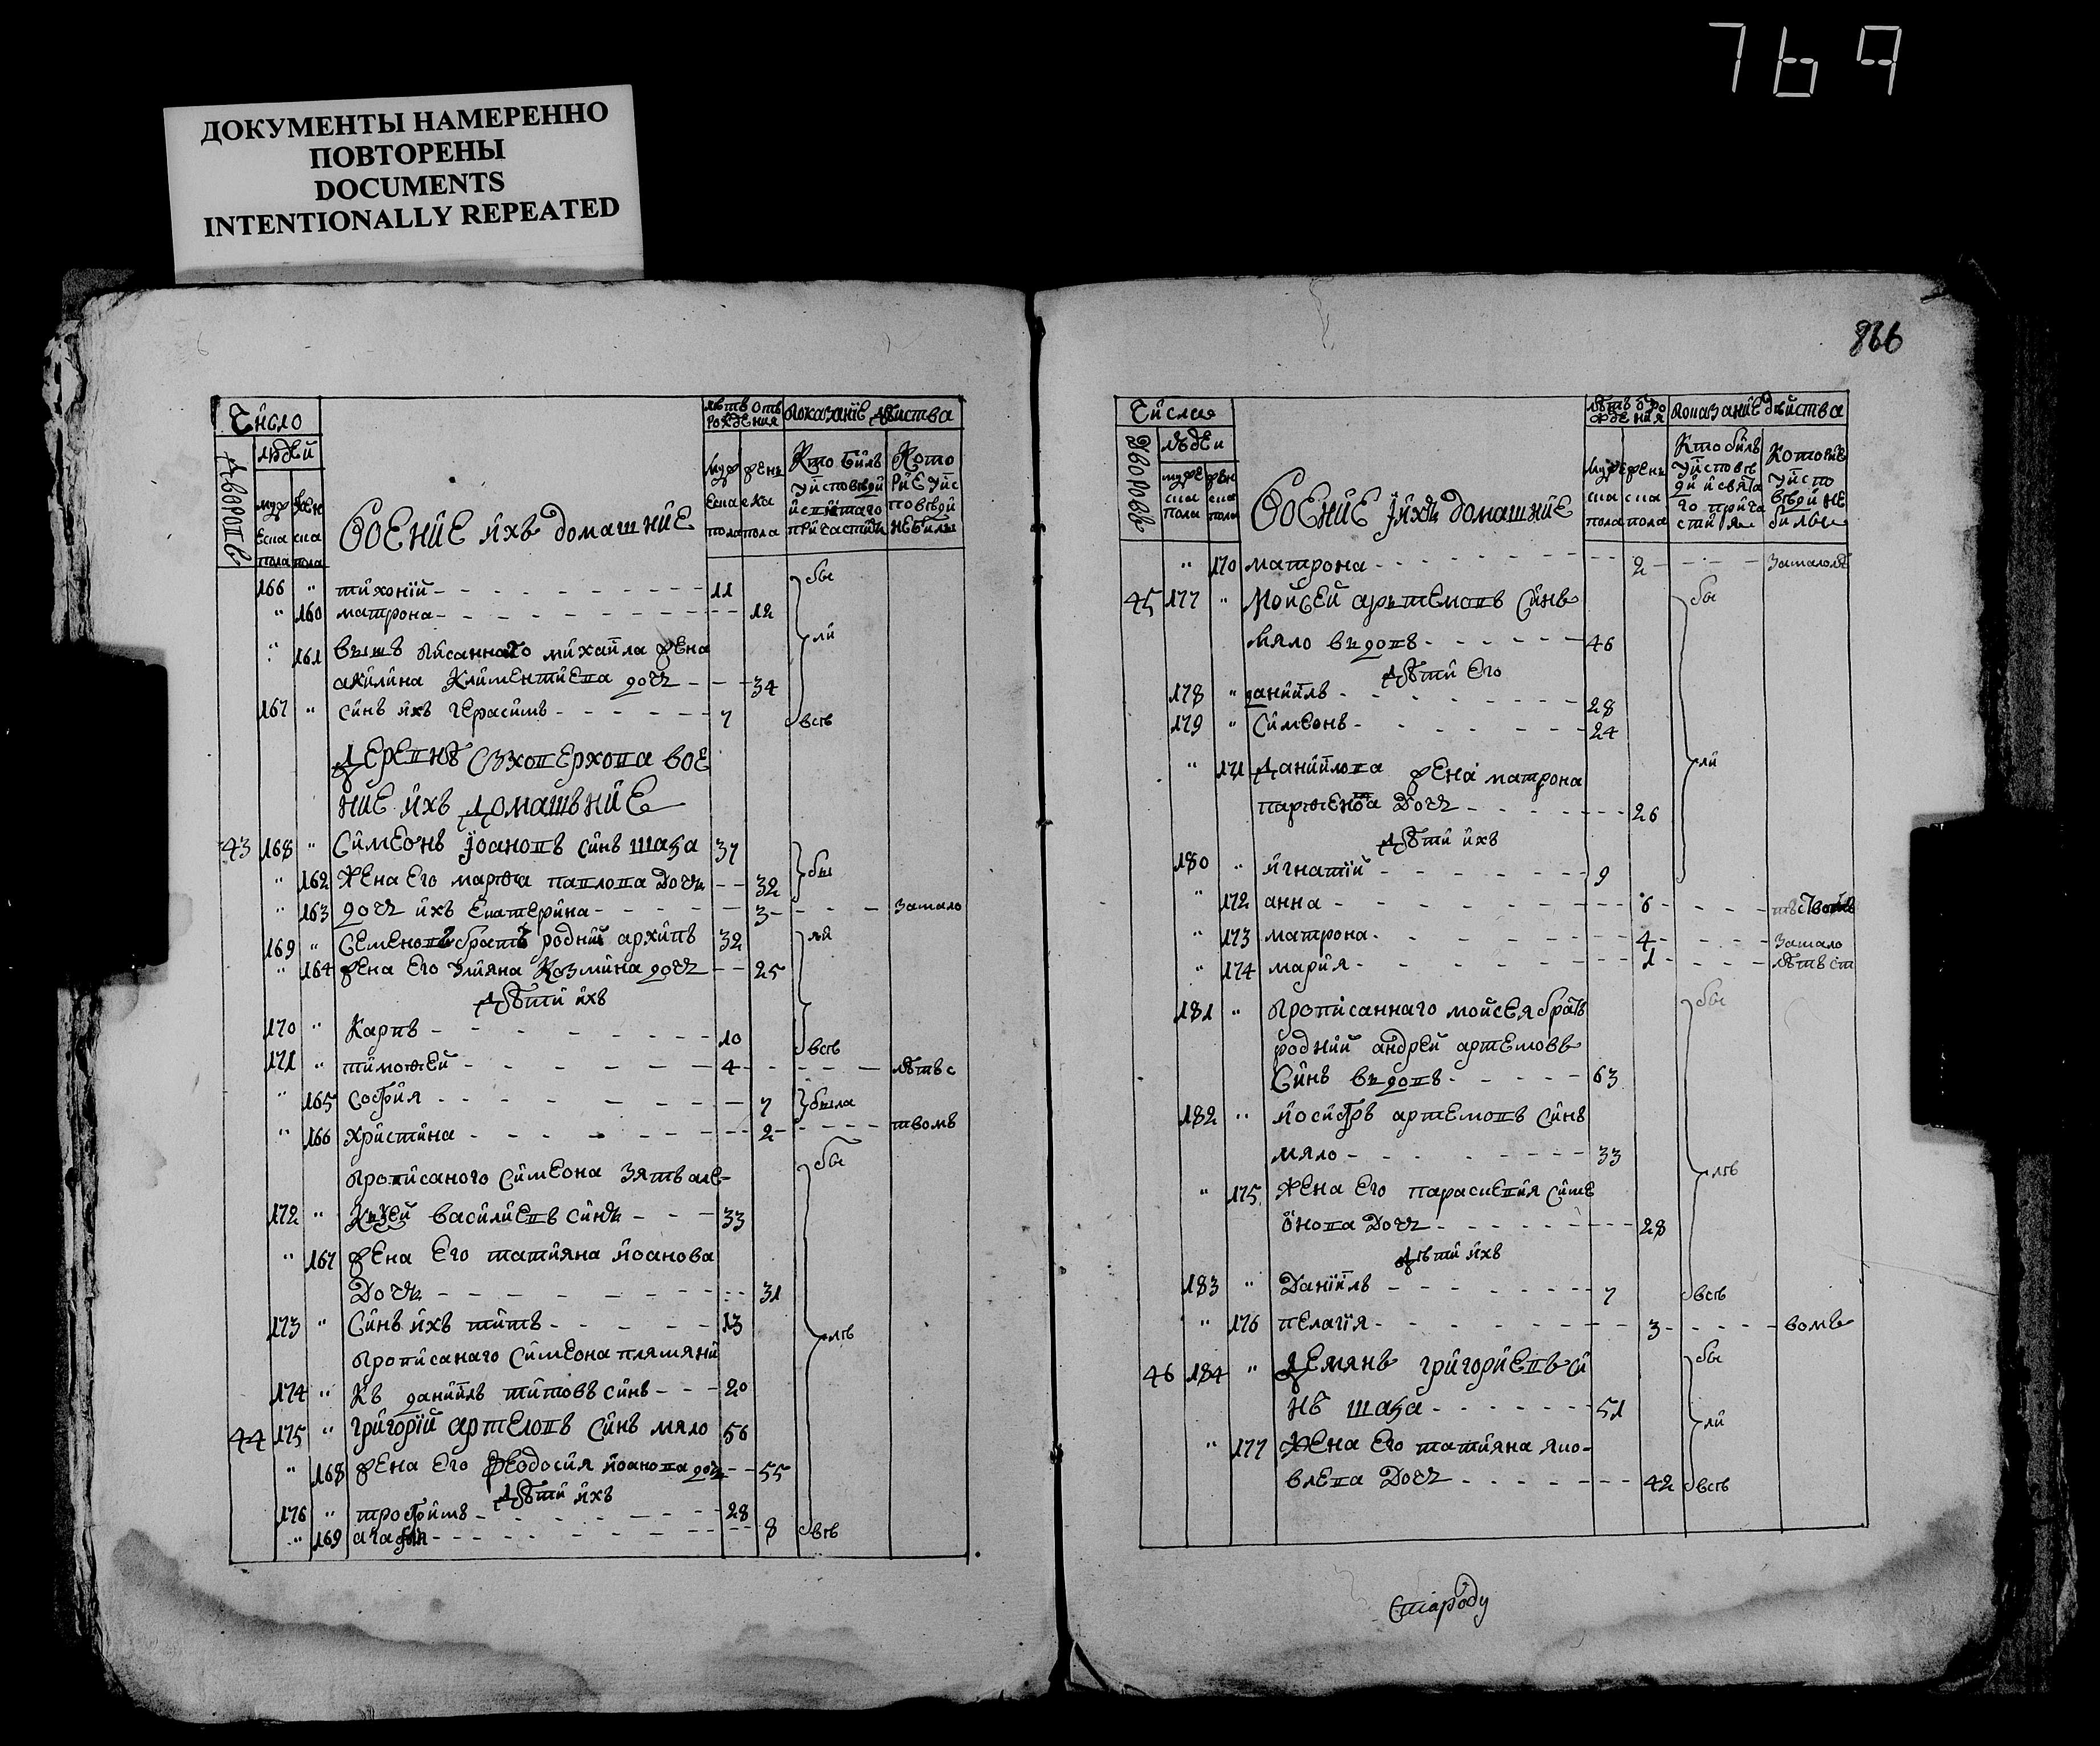 769
ДОКУМЕНТЫ НАМЕРЕННО
ПОВТОРЕНЫ
DOCUMENTS
INTENTIONALLY REPEATED
866
Число
людей
дворовъ
мужеска пола
женска пола
воение ихъ домашние
лѣтъ отъ рождения
мужеска пола
женска пола
показание действа
Кто билъ уисповѣди и святаго причастия
Которие уисповѣди небили
166 " тихоний - - - 11 бы
" 160 матрона - - - 12
" 161 вышъ писаннаго михайла жена ли
акилина Климентиева дочъ - - 34
167 " синъ ихъ герасимъ - - - 7 всѣ
Деревнѣ Суховерхова вое
ние ихъ домашъние
43 168 " Симеонъ Іоановъ синъ шага 37
" 162 Жена Его марѳа павлова Дочъ - - 32 бы
" 163 дочъ ихъ Екатерина - - - 3 - - - Замало
169 " Семеновъ братъ родний архипъ 32 ли
" 164 жена Его улияна Козмина дочъ - - 25
Дѣти ихъ
170 " Карпъ - - - 10 всѣ
171 " тимоѳей - - - 4 - - - лѣтъс
" 165 София - - - 7 была
" 166 христина - - - 2 - - - твомъ
прописаного Симеона Зятъ але- бы
172 " Къзѣй василиевъ синъ - - - 33
" 167 жена Его татияна йоанова
Дочъ - - - 31
173 " Синъ ихъ титъ - - - 13 лѣ
прописанаго Симеона плямяни
174 " Къ даниилъ титовъ синъ - - - 20
44 175 " григорий артемовъ Синъ мяло 56
" 168 жена Его Феодосия йоанова дочъ - - 55
Дѣти ихъ
176 " трофимъ - - - 28
" 169 агафия - - - 8 всѣ
Числия
людеи
дворовъ
мужеска пола
женска пола
воение ихъ домашние
лѣтъ о рождения
мужеска пола
женска пола
показание дѣйства
Кто билъ уисповѣди и святаго причастия
Которие уисповѣди небильи
" 170 матрона - - - 2 - - - Замалолѣ
45 177 " Мойсей арътемовъ Синъ бы
мяло въдовъ - - - 46
Дѣти Его
178 " даниилъ - - - 28
179 " Симеонъ - - - 24
" 171 Данийлова жена матрона ли
парѳенова Дочъ - - - 26
Дѣти ихъ
180 " игнатий - - - 9
" 172 анна - - - 6 - - -
" 173 матрона - - - 4 - - - Замало
" 174 мария - - - 1 - - - лѣтъст
181 " прописаннаго мойсея братъ бы
родний андрей артемовъ
Синъ въдовъ - - - 63
182 " йосифъ артемовъ Синъ
мяло - - - 33 лѣ
" 175 Жена Его параскевия Симе
онова Дочъ - - - 28
Дѣти ихъ
183 " Даниилъ - - - 7 всѣ
" 176 пелагия - - - 3 - - - вомъ
46 184 " Демянъ григориевъ си бы
нъ шага - - - 51 ли
" 177 Жена Его татияна яко-
влева Дочъ - - - 42 всѣ
Староду